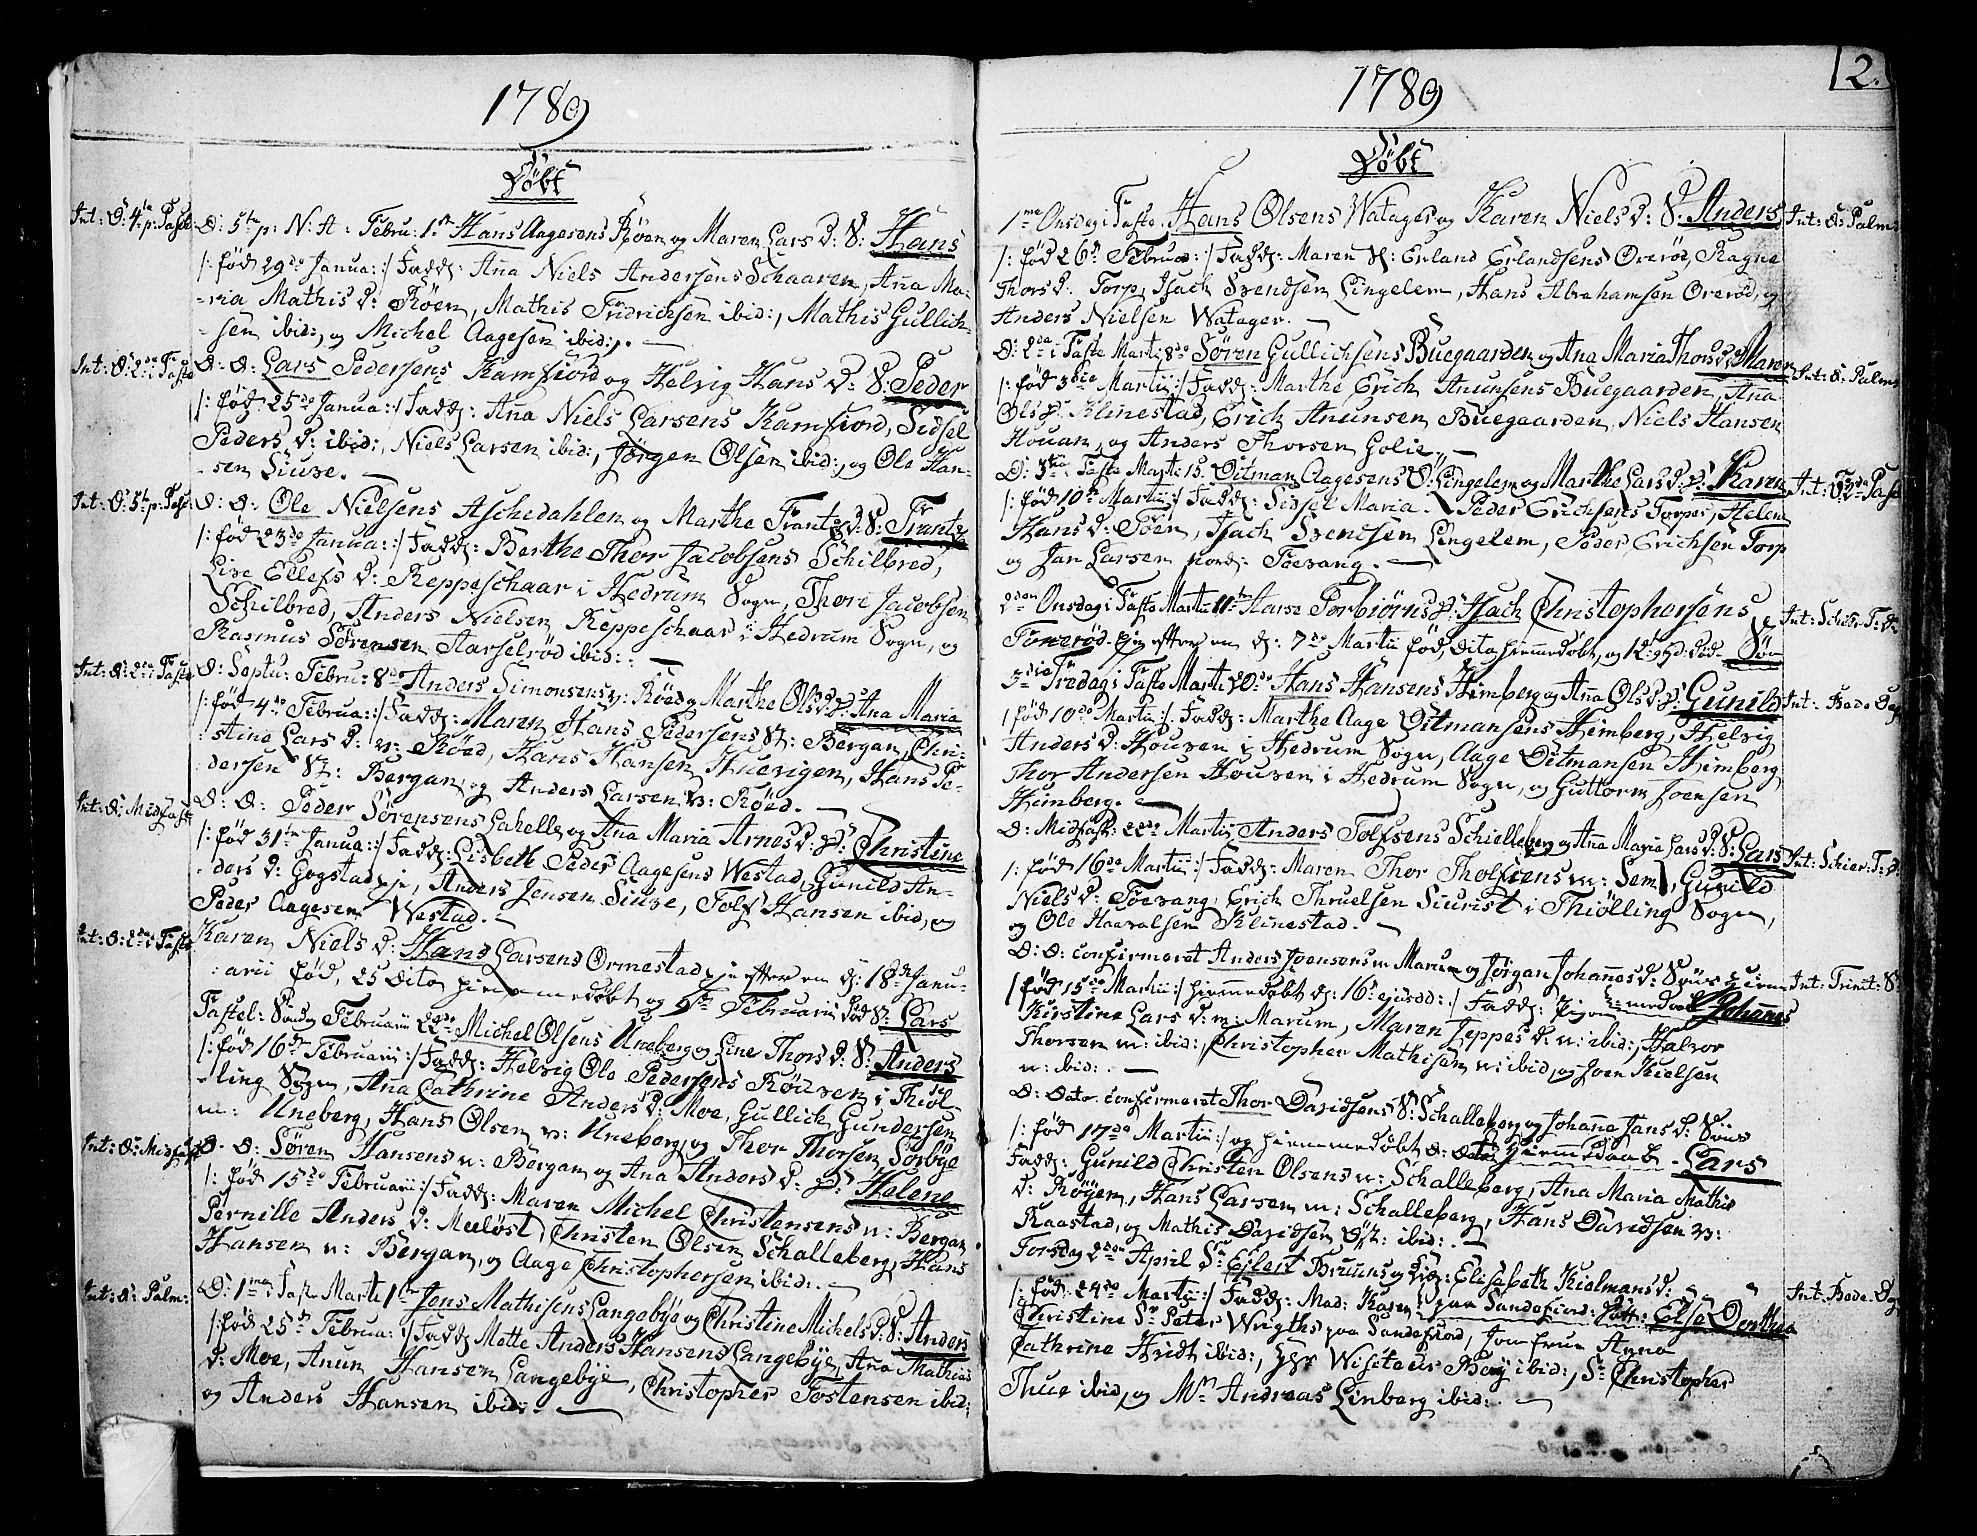 1789
Döbt
Int: D: 4de p: Pasch
D: 5te p: N: A: Febru: 1ste Hans Aagesens Röen og Maren Lars D: S: Hans
/: föd 29de Janua: :/ Fadd: Ana Niels Andersens Schaaren, Ana Ma-
ria Mathis D: Röen, Mathis Fridrichsen ibid:, Mathis Gullich-
sen ibid:, og Michel Aagesen ibid:.
Int: D: 2den i Faste
D: D: Lars Pedersens Kamfiord og Helvig Hans D: S: Peder
/: föd 25de Janua: :/ Fadd: Ana Niels Larsens Kamfiord, Sidsel
Peders D: ibid:, Niels Larsen ibid:, Jörgen Olsen ibid:, og Ole Han-
sen Siuve.
Int: D: 5te p: Pasc:
D: D: Ole Nielsens Aschedahlen og Marthe Frantz D: S: Frantz
/: föd 23de Janua: :/ Fadd: Berthe Thor Jacobsens Schilbred,
Lise Ellefs D: Reppeschaar i Hedrum Sogn, Thore Jacobsen
Schilbred, Anders Nielsen Reppeschaar i Hedrum Sogn, og
Rasmus Sörensen Aarselröd ibid:.
Int: D: 2den i Faste
D: Septu: Febru: 8de Anders Simonsens n: Röed og Marthe Ols D: D: Ana Maria
/: föd 4de Februa: :/ Fadd: Maren Hans Pedersens St: Bergan, Chri-
stine Lars D: n: Röed, Hans Hansen Huevigen, Hans Pe-
dersen St: Bergan, og Anders Larsen n: Röed.
Int: D: Midfast
D: D: Peder Sörensens Lahelle og Ana Maria Arnes D: D: Christine
/: föd 31te Janua: :/ Fadd: Lisbeth Peder Aagesens Westad, Gunild An-
ders D: Gogstad, Anders Jensen Siuve, Tolf Hansen ibid, og
Peder Aagesen Westad.
Int: D: 2den i Faste
Karen Niels D: Hans Larsens Ormestad, efter en d: 18de Janu-
arii föd, 25 dito hiemmedöbt og 5te Februarii död S: Lars
Fastel: Söndag Februarii 22de Michel Olsens Uneberg og Line Thors D: S: Anders
/: föd 16de Februarii :/ Fadd: Helvig Ole Pedersens Rödven i Thiöl-
ling Sogn, Ana Cathrine Anders D: Moe, Gullich Gundersen
n: Uneberg, Hans Olsen n: Uneberg, og Thor Thorsen Sörbye
Int: D: Midfast
D: D: Sören Hansens n: Bergan og Ana Anders D: D: Helene
/: föd 15de Februarii :/ Fadd: Maren Michel Christensens n: Bergan
Pernille Anders D: Meelöst, Christen Olsen Schalleberg, Hans
Hansen n: Bergan, og Aage Christophersen ibid:.
Int: D: Palm:
D: 1ma i Faste Marti 1ste Jens Mathisens Langebye og Christine Michels D: S: Anders
/: föd 25de Februa: :/ Fadd: Mette Anders Hansens Langebye, Ana Mathis
D: Moe, Anun Hansen Langebye, Christopher Tostensen ibid:
og Anders Hansen ibid:.
1789
2.
Döbt
1me Onsdag i Faste Hans Olsens Watager og Karen Niels D: S: Anders
Int: D: Palm:
/: föd 26de Februa: :/ Fadd: Maren Erland Erlandsens Overöd, Ragne
Thors D: Torp, Isach Svendsen Lingelem, Hans Abrahamsen Overöd, og
Anders Nielsen Watager.
D: 2da i Faste Marti 8de Sören Gullichsens Buegaarden og Ana Maria Thors D: D: Maren
Int: D: Palm:
/: föd 3die Martii :/ Fadd: Marthe Erich Anunsens Buegaarden, Ana
Ols D: Klinestad, Erich Anunsen Buegaarden, Niels Hansen
Houan, og Anders Thorsen Golie.
D: 3tia i Faste Marti 15. Ditman Aagesens Lingelem og Marthe Lars D: D: Karen
Int: D: 2da Pasc
/: föd 10de Martii :/ Fadd: Sidsel Maria Peder Erichsens Torper, Helene
Hans D: Töen, Isach Svendsen Lingelem, Peder Erichsen Torp
og Jan Larsen nord: Töevang.
2den Onsdag i Faste Marti 11te Aase Torbiörns D: Isach Christophersens
Int: Schier: T: D:
Fonneröd efter en d: 7de Martii föd, dito hiemmedöbt, og 12: död Sön
3die Fredag i Faste Marti 20de Hans Hansens Himberg og Ana Ols D: D: Gunild
Int: Bede Dag
/: föd 10de Martii :/ Fadd: Marthe Aage Ditmansens Himberg, Helvig
Anders D: Houven i Hedrum Sogn, Aage Ditmansen Himberg
Thor Andersen Houven i Hedrum Sogn, og Guttorm Joensen
Himberg.
D: Midfast: 22de Martii Anders Tolfsens Schielleberg og Ana Maria Lars D: S: Lars
Int: Schier: T: D:
/: föd 16de Martii :/ Fadd: Maren Thor Tholfsens n: Sem, Gunild
Niels D: Töevang, Erich Thruelsen Siurist i Thiölling Sogn,
og Ole Haavalsen Klinestad.
D: D: confirmeret Anders Joensens n: Marum og Jörgan Johannes D: Söns hiem-
Int: Trinit: S:
/: föd 15de Martii :/ hiemmedöbt d: 16de ejusdd: :/ Fadd: medaab Johannes
Kirstine Lars D: n: Marum, Maren Jeppes D: n: ibid:, Halvor
Thorsen n: ibid:, Christopher Mathisen n: ibid, og Joen Kielsen
n: ibid:.
D: Dato confirmeret Thor Davidsens S: Schalleberg og Johanna Jans D: Söns
/: föd 17de Martii :/ og hiemmedöbt D: Dato hiemedaab Lars
Fadd: Gunild Christen Olsens n: Schalleberg, Ana Maria Mathis
D: Röyen, Hans Larsen n: Schalleberg, Hans Davidsen n:
Raastad, og Mathis Davidsen Öst: ibid:.
Torsdag 2den April Sr Ejlert Bruuns og Elisabeth Kielmans D:
/: föd 24de Martii :/ Fadd: Mad: Karen paa Sandefiord: Else Dorthea
Int: Bede Dag
Christine Sr Peter Wrigths paa Sandefiord, Jomfrue Anna
Cathrine Hvidt ibid:, Hr Wisiteur Boy ibid:, Sr Christopher
Thue ibid, og Mr Andreas Linberg ibid:.